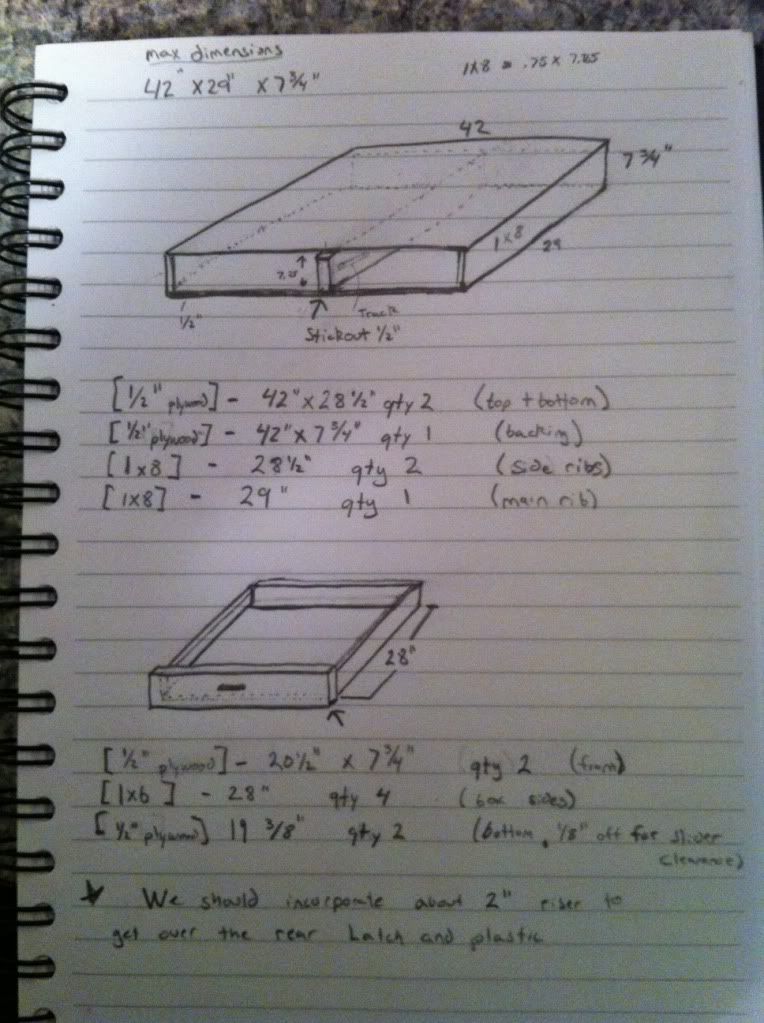 max dimensions
42" x 29" x 7 3/4"
1x8 = .75 x 7.25
42
7 3/4"
1x8
29
7.25
1/2"
Track
Stickout 1/2"
[1/2" plywood] - 42" x 28 1/2" qty 2 (top + bottom)
[1/2" plywood] - 42" x 7 3/4" qty 1 (backing)
[1x8] - 28 1/2" qty 2 (side ribs)
[1x8] - 29" qty 1 (main rib)
28"
[1/2" plywood] - 20 1/2" x 7 3/4" qty 2 (front)
[1x6] - 28" qty 4 (box sides)
[1/2" plywood] 19 3/8" qty 2 (bottom, 1/8" off for slider
clearance)
We should incorporate about 2" riser to
get over the rear hatch and plastic